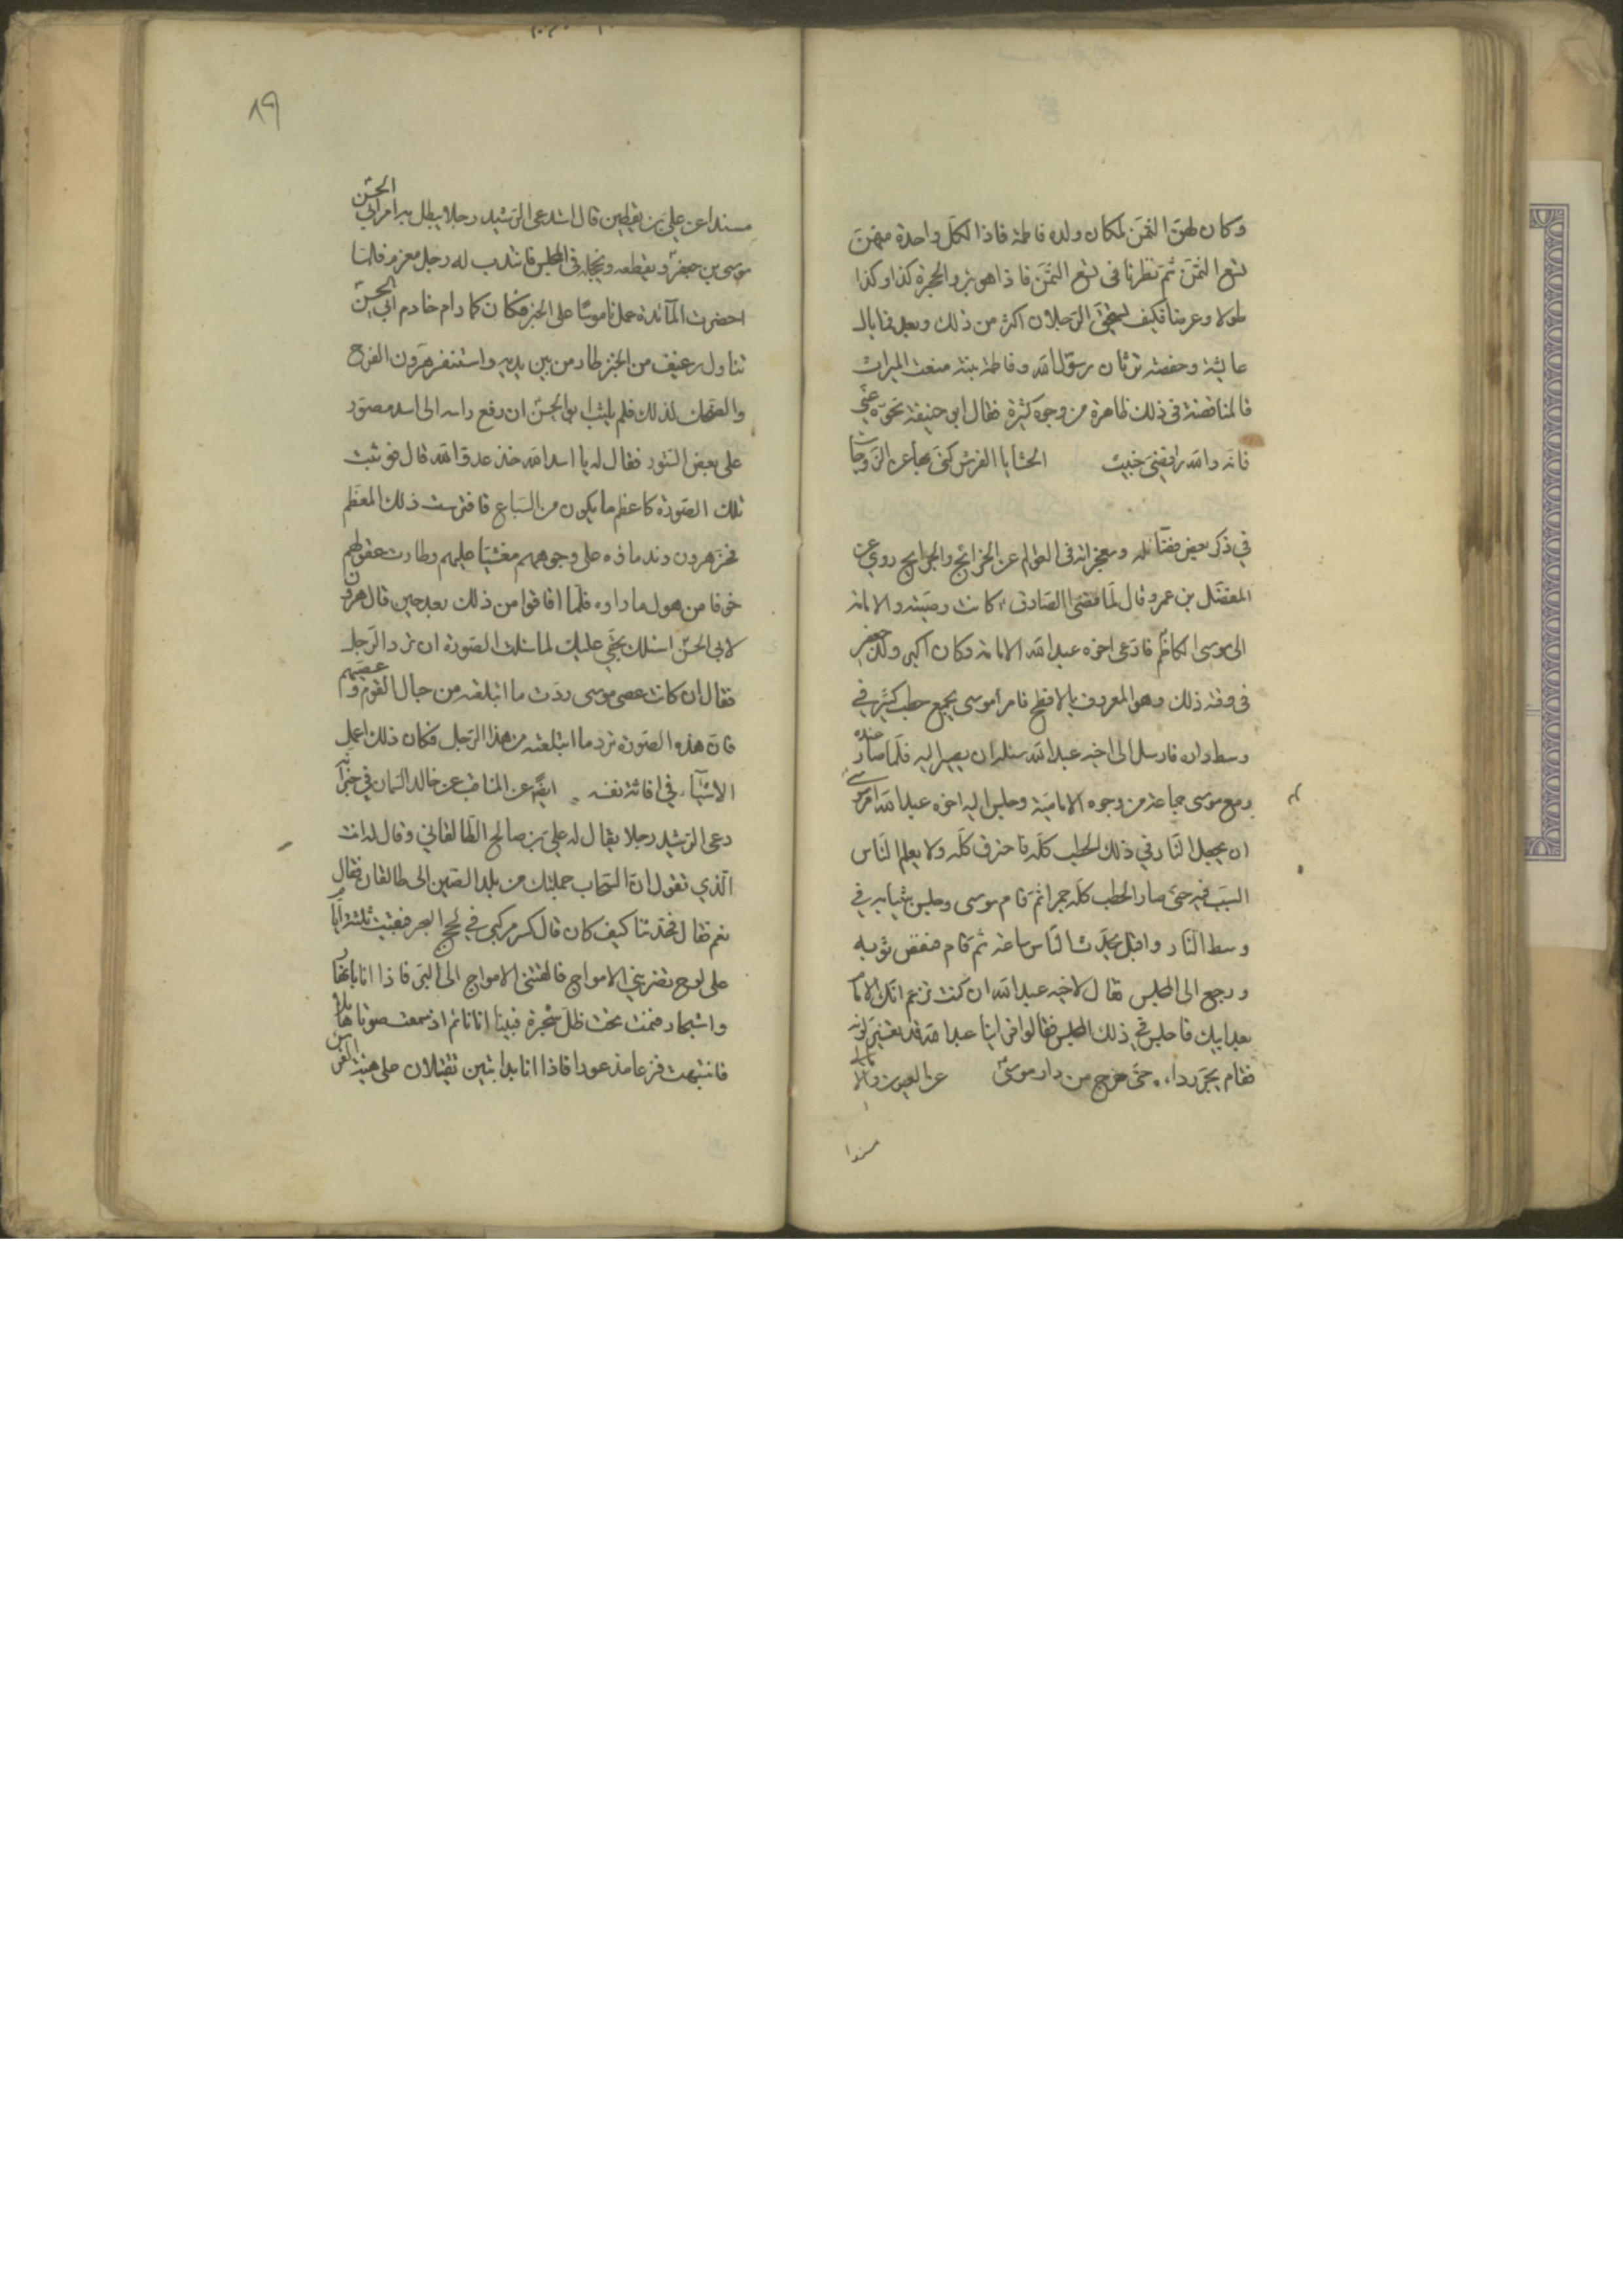 وكان لهنّ الثمن لمكان ولده فاطمة فاذا لكل واحدة منهنّ
تسع الثمن ثمّ نظرنا فى تسع الثمن فاذا هو شبر والحجرة كذا وكذا
طولا وعرضا فكيف يستحقّ الرّجلان اكثر من ذلك وبعد فما بال
عايشة وحفصة ترثان رسول الله وفاطمة بنته منعت الميراث
فالمناقضة فى ذلك ظاهرة من وجوه كثيرة فقال ابو حنيفة نحّوه عنّي
فانّه والله رافضيّ خبيث الحشايا الفرش كنى بها عن الزّوجات
في ذكر بعض فضائله ومعجزاته فى العوالم عن الخرائج والجرايح روي عن
المفضّل بن عمر وقال لمّا قضى الصّادق كانت وصيته والامامة
الى موسى الكاظم فادّعى اخوه عبد الله الامامة وكان اكبر ولد جعفر
فى وقته ذلك وهو المعروف بالافطح فامر موسى بجمع حطب كثير في
وسط داره فارسل الى اخيه عبد الله يسئله ان يصير اليه فلمّا صار عنده
ومع موسى جماعة من وجوه الاماميّة وجلس اليه اخوه عبد الله امر موسى
ان يجعل النّار في ذلك الحطب كلّه فاحترق كلّه ولا يعلم النّاس
السبب فيه حتّى صار الحطب كلّه جمرا ثمّ قام موسى وجلس بثيابه في
وسط النّار واقبل يحدّث النّاس ساعة ثمّ قام فنفض ثوبه
ورجع الى المجلس فقال لاخيه عبد الله ان كنت تزعم انّك الامام
بعد ابيك فاجلس في ذلك المجلس فقالوا فراينا عبد الله قد تغيّر لونه
فقام يجرّ رداءه حتّى خرج من دار موسى عن العيون والامالي
مسندا
٨٩
مسندا عن علي بن يقطين قال استدعى الرّشيد رجلا يبطل به امر ابي الحسن
موسى بن جعفر ويقطعه ويخجله في المجلس فانتدب له رجل معزم فلمّا
احضرت المآئدة عمل ناموسا على الخبز فكان كلما رام خادم ابي الحسن
تناول رغيف من الخبز طار من بين يديه واستنفر هرون الفرح
والضحك لذلك فلم يلبث ابو الحسن ان رفع راسه الى اسد مصوّر
على بعض السّتور فقال له يا اسد الله خذ عدوّ الله قال فوثبت
تلك الصّورة كاعظم ما يكون من السّباع فافترست ذلك المعظم
فخرّ هرون وندماؤه على وجوههم مغشيّا عليهم وطارت عقولهم
خوفا من هول ما راوه فلمّا افاقوا من ذلك بعد حين قال هرون
لابي الحسن اسئلك بحقّي عليك لما سئلت الصّورة ان تردّ الرّجل
فقال ان كانت عصى موسى ردّت ما ابتلعته من حبال القوم وعصيّهم
فانّ هذه الصّورة تردّ ما ابتلعته من هذا الرّجل فكان ذلك اعمل
الاشيآء في افاتة نفسه ايضا عن المناقب عن خالد السّمان في خبر انّه
دعى الرّشيد رجلا يقال له علي بن صالح الطّالقاني وقال له انت
الّذي تقول انّ السّحاب حملتك من بلد الصّين الى طالقان فقال
نعم فقال فحدّثنا كيف كان قال كسر مركبي في لجج البحر فبقيت ثلثة ايّام
على لوح تضربني الامواج فالقتني الامواج الى البرّ فاذا انا بانهار
واشجار فنمت تحت ظلّ شجرة فبينا انا نائم اذ سمعت صوتا هائلا
فانتبهت فزعا مذعورا فاذا انا بدابّتين تقتتلان على هيئة الفرس